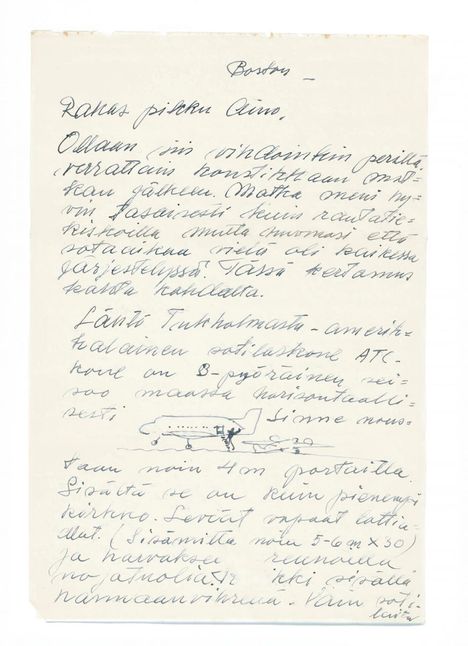 Boston –
Rakas pikku Aino,
Ollaan siis vihdoinkin perillä
verrattain konstikkaan mat-
kan jälkeen. Matka meni hy-
vin tasaisesti kuin rautatie-
kiskoilla mutta huomasi että
sotaaikaa vielä oli kaikessa
järjestelyssä. Tässä kertomus
kohdalta.
Lähtö Tukholmasta – amerik-
kalainen sotilaskone ATC-
kone on 3-pyöräinen, sei-
soo maassa horisontaalli-
sesti Sinne nous-
taan noin 4 m portailla.
Sisältä se on kuin pienempi
kirkko. Leveät vapaat lattia-
alat. (Sisämitta noin 5-6 m x 30)
ja harvaksee reunoilla
nojatuolia. sisällä
harmaanvihreää – Vain soti-
laita